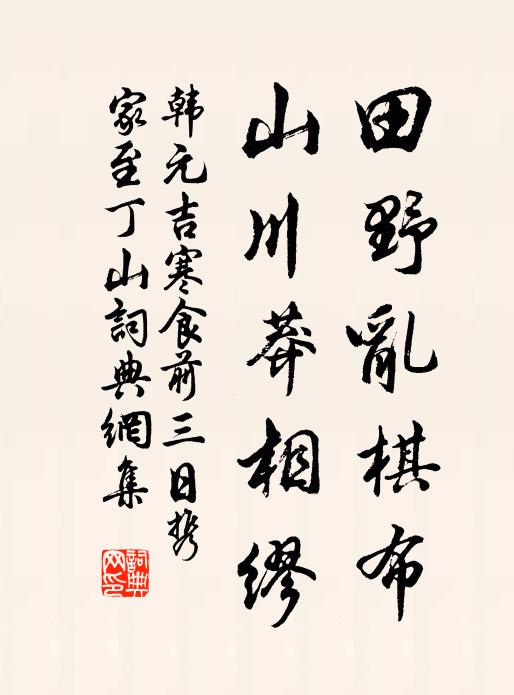 田野亂棋布
山川莽相繆
韩元吉寒食前三日携
家至丁山詞典網集
詞典网印